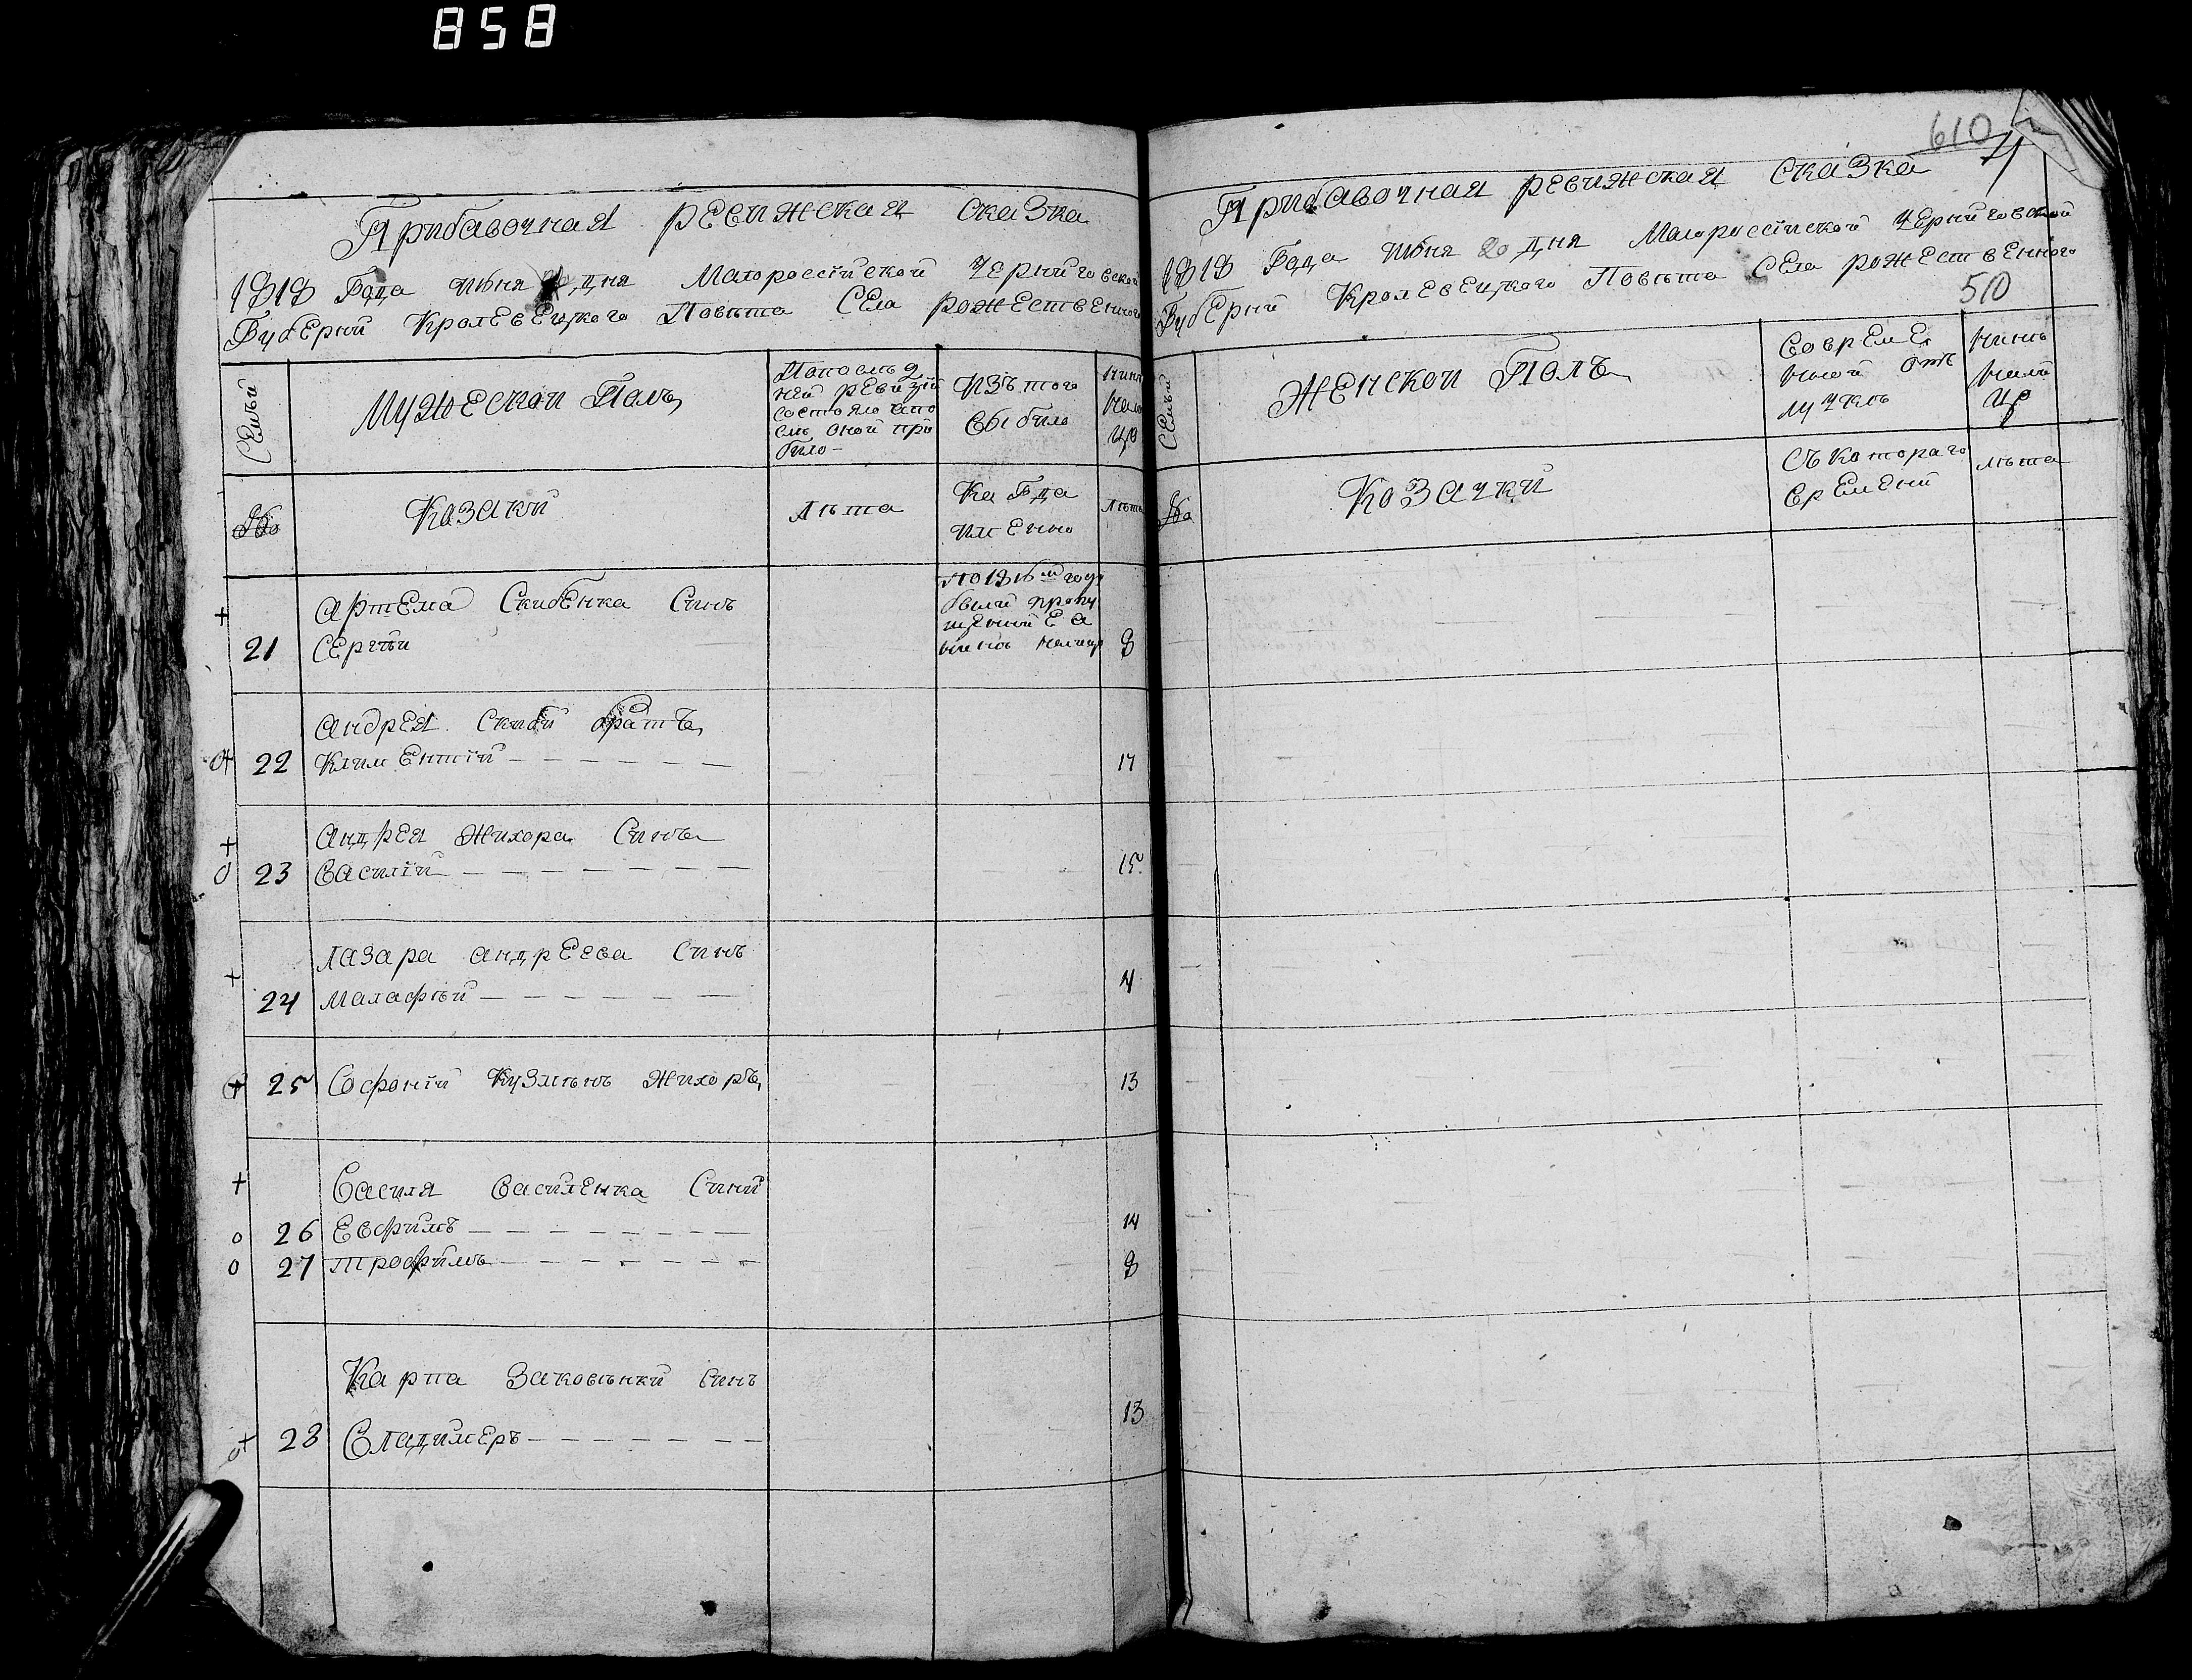 858
Прибавочная ревижская сказка
1818 Года июня дня Малороссійской Черниговской
Губерній Кролевецкого Повѣта Села рожественного
Семьи
Мужескои Полъ
Попослѣд
ней ревизіи
состояло ипо
слѣ оной при
было
Изъ того
выбыло
Нинѣ
нали
цо
№
Козаки
Лѣта
Когда
именно
Лѣта
Артема Скибенка Синъ
по 1816м году
были пропу
щенніе а
нинѣ налицо
21 Сергѣй 8
Андрея Скиби братъ
22 Климентій 17
Андрея Жихора Синъ
23 Василій 15
Лазара андреева Синъ
24 Малафѣй 4
25 Софоній Кузминъ Жихоръ 13
Василя Василенка Сини
26 Евфимъ 14
27 трофимъ 8
Карпа Заковѣнки синъ
28 Владимеръ 13
610
510
Прибавочная ревижская сказка
1818 Года июня 20 дня Малороссійской Черниговской
Губерній Кролевецкого Повѣта Села рожественного
Семьи
Женскои Полъ
Во време
нной отъ
лучкѣ
Нинѣ
нали
цо
№
Козачки
Съ котораго
времени
лѣта